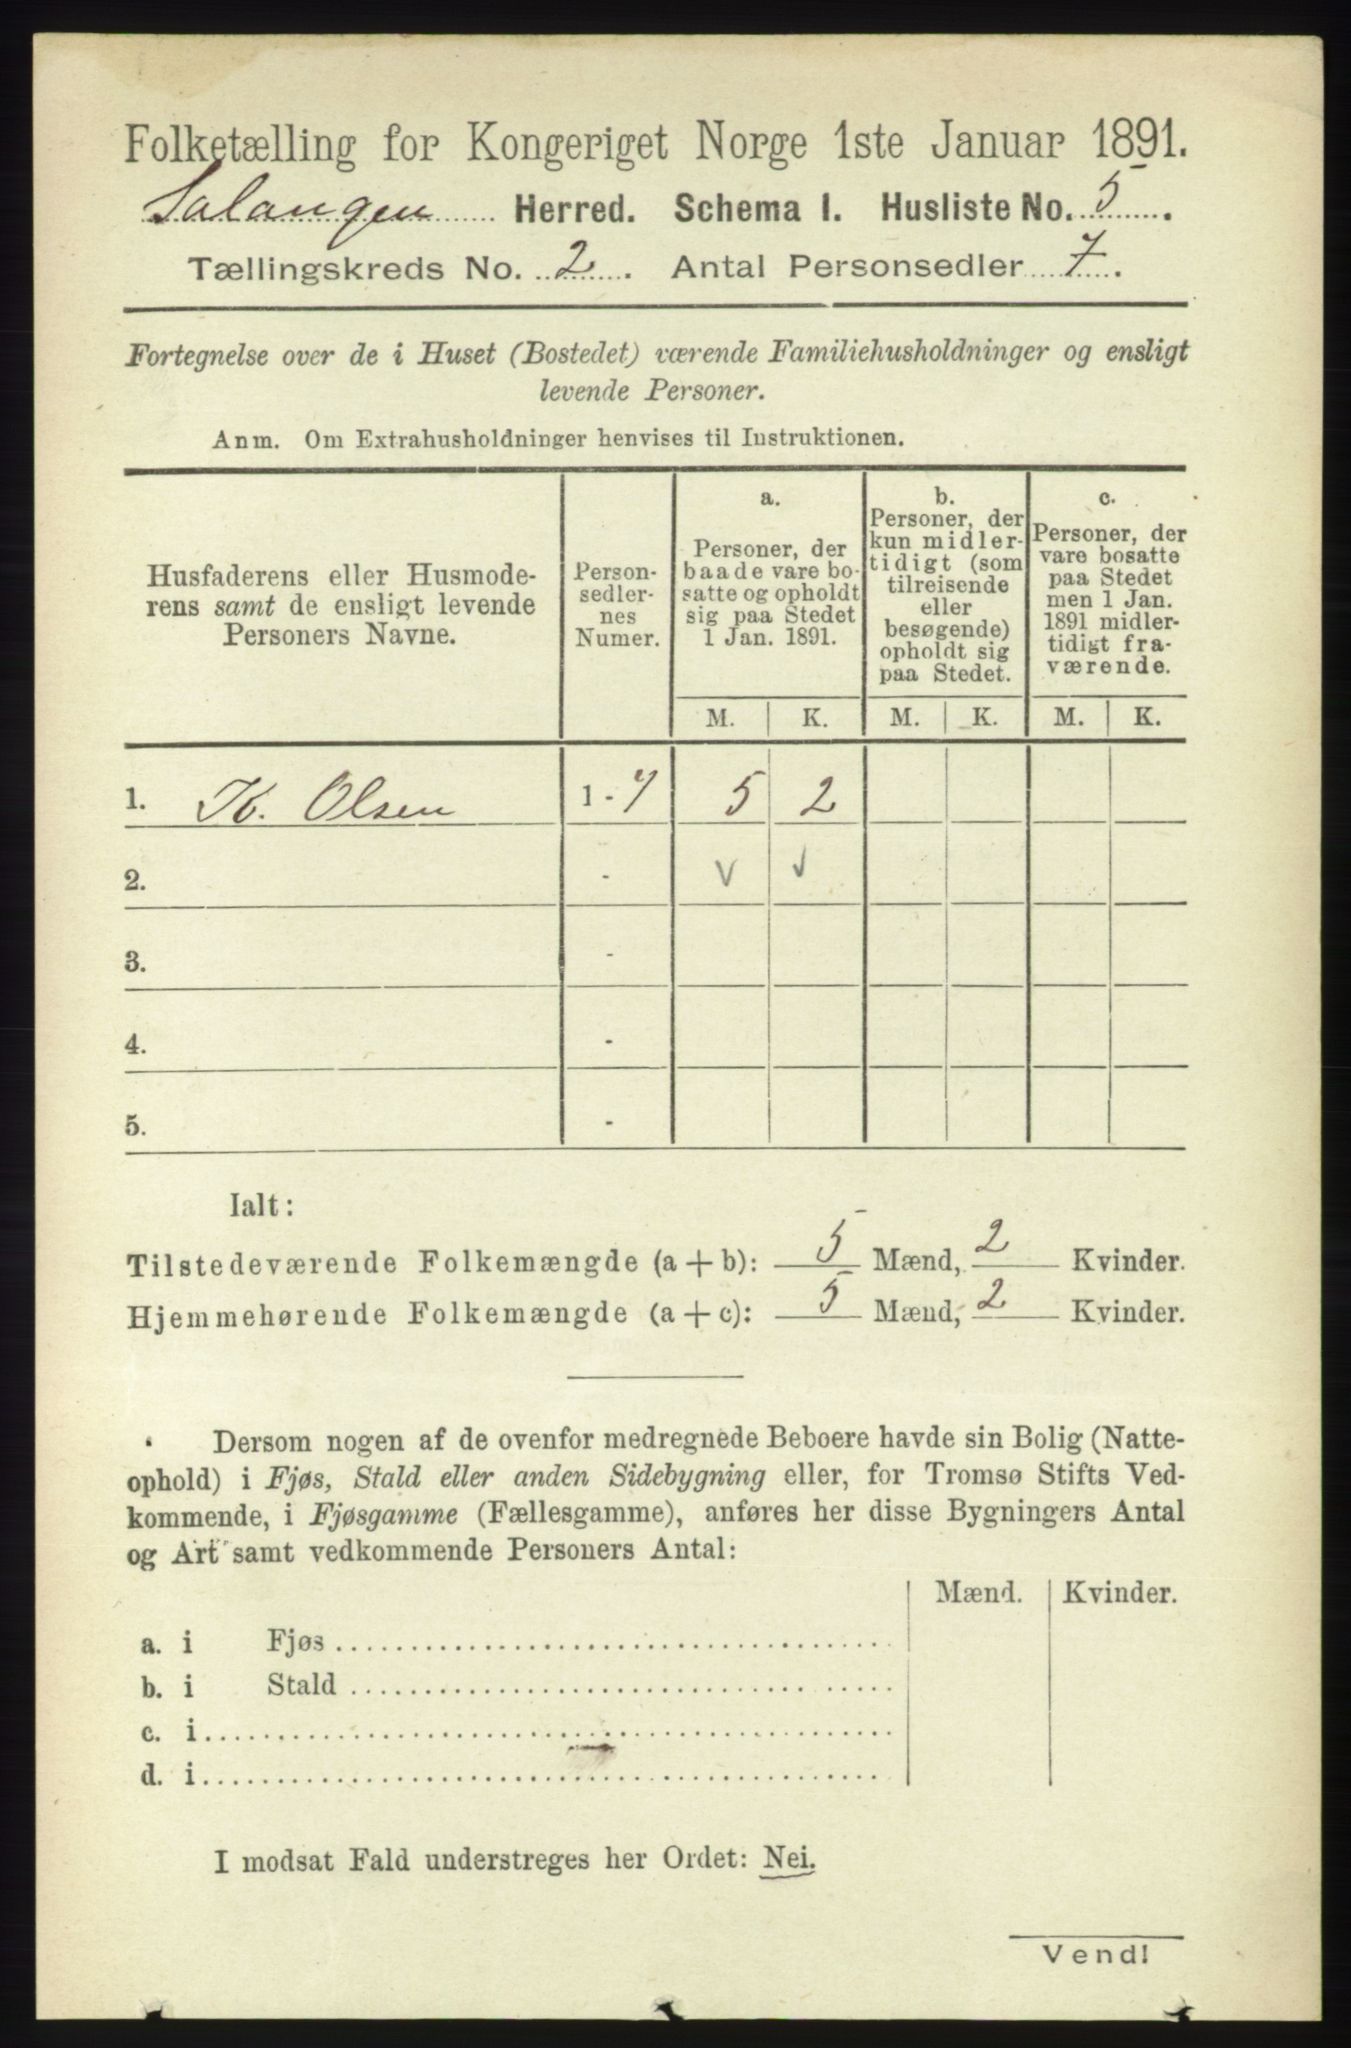 Folketælling for Kongeriget Norge 1ste Januar 1891.
Salangen Herred. Schema I. Husliste No. 5.
Tællingskreds No. 2. Antal Personsedler 7.
Fortegnelse over de i Huset (Bostedet) værende Familiehusholdninger og ensligt
levende Personer.
Anm. Om Extrahusholdninger henvises til Instruktionen.
Husfaderens eller Husmode-
rens samt de ensligt levende
Personers Navne.
Person-
sedler-
nes
Numer.
a.
Personer, der
baade vare bo-
satte og opholdt
sig paa Stedet
1 Jan. 1891.
b.
Personer, der
kun midler-
tidigt (som
tilreisende
eller
besøgende)
opholdt sig
paa Stedet.
c.
Personer, der
vare bosatte
paa Stedet
men 1 Jan.
1891 midler-
tidigt fra-
værende.
M. K. M. K. M. K.
1. K. Olsen 1-7 5 2
2. - v v
3. -
4. -
5. -
Ialt:
Tilstedeværende Folkemængde (a + b): 5 Mænd, 2 Kvinder.
Hjemmehørende Folkemængde (a + c): 5 Mænd, 2 Kvinder.
Dersom nogen af de ovenfor medregnede Beboere havde sin Bolig (Natte-
ophold) i Fjøs, Stald eller anden Sidebygning eller, for Tromsø Stifts Ved-
kommende, i Fjøsgamme (Fællesgamme), anføres her disse Bygningers Antal
og Art samt vedkommende Personers Antal:
Mænd. Kvinder.
a. i Fjøs
b. i Stald
c. i
d. i
I modsat Fald understreges her Ordet: Nei.
Vend!